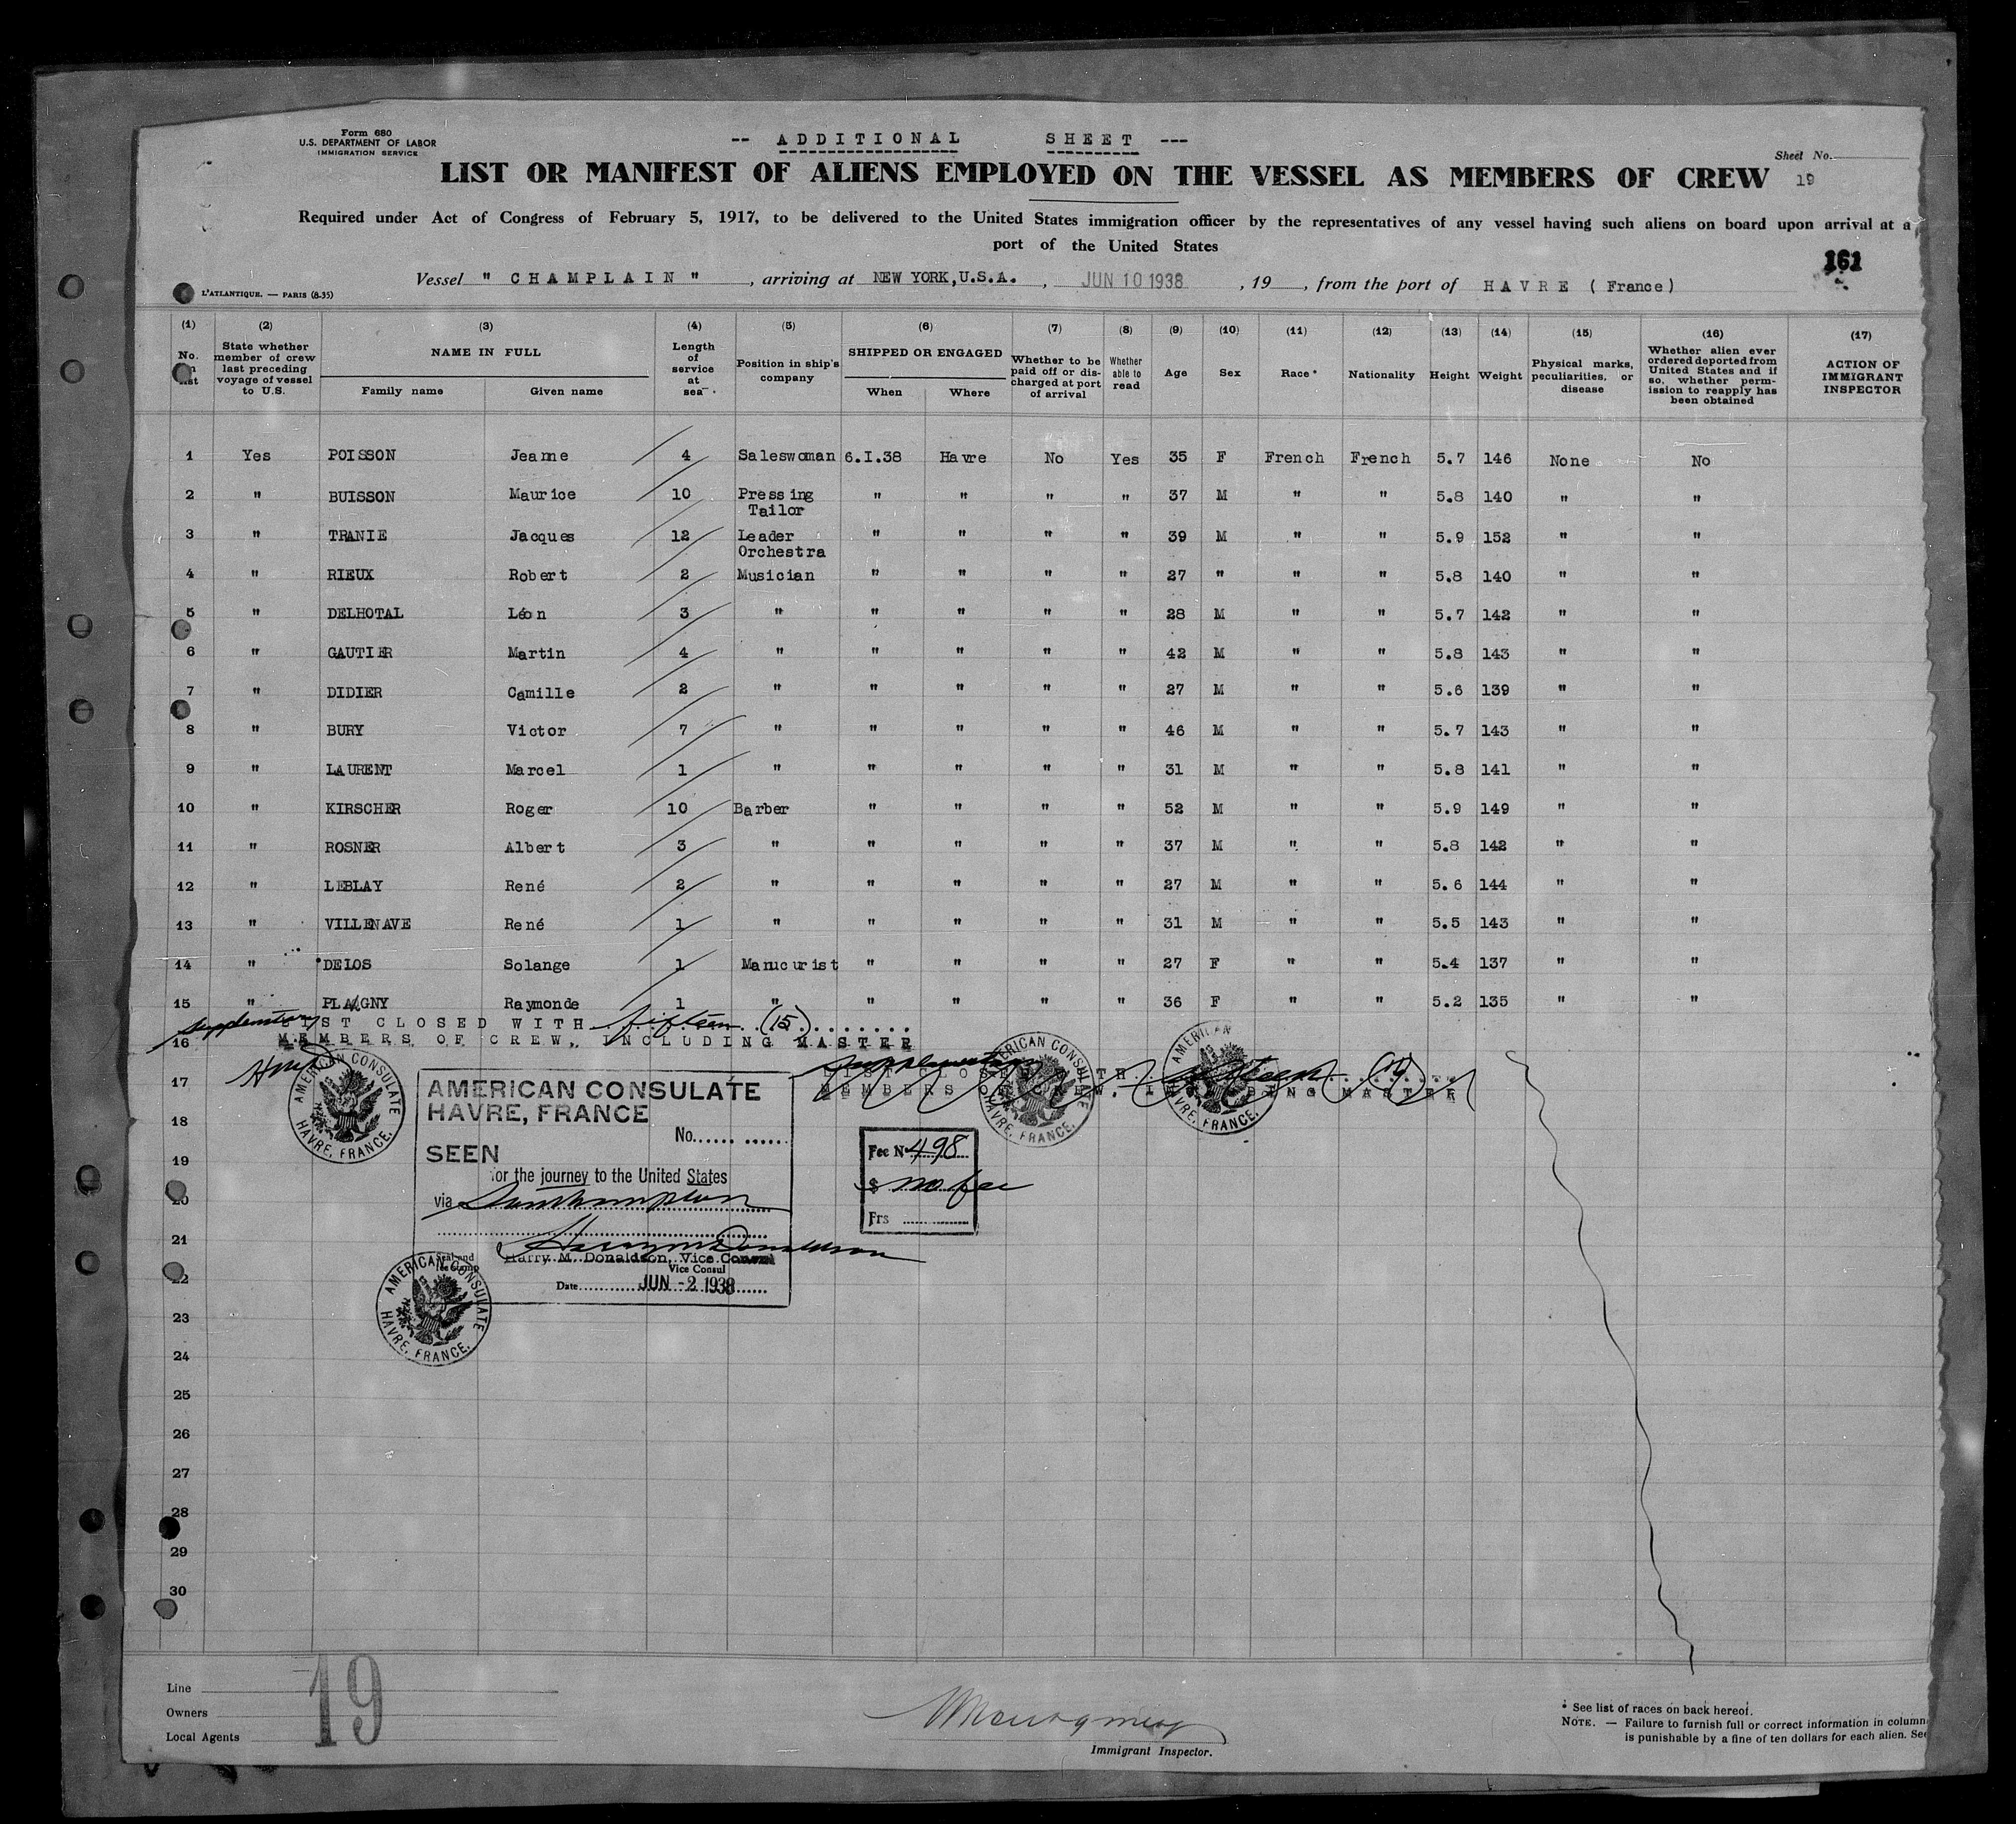 Form 680
U.S. DEPARTMENT OF LABOR
IMMIGRATION SERVICE
-- ADDITIONAL SHEET ---
Sheet No.
LIST OR MANIFEST OF ALIENS EMPLOYED ON THE VESSEL AS MEMBERS OF CREW
19
Required under Act of Congress of February 5, 1917, to be delivered to the United States immigration officer by the representatives of any vessel having such aliens on board upon arrival at a
port of the United States
161
Vessel " CHAMPLAIN ", arriving at NEW YORK,U.S.A., JUN 10 1938, 19, from the port of HAVRE (France)
L'ATLANTIQUE. — PARIS (8-35)
(1) (2) (3) (4) (5) (6) (7) (8) (9) (10) (11) (12) (13) (14) (15) (16) (17)
No. State whether member of crew last preceding voyage of vessel to U.S. NAME IN FULL Family name Given name Length of service at sea Position in ship's company SHIPPED OR ENGAGED When Where Whether to be paid off or discharged at port of arrival Whether able to read Age Sex Race * Nationality Height Weight Physical marks, peculiarities, or disease Whether alien ever ordered deported from United States and if so, whether permission to reapply has been obtained ACTION OF IMMIGRANT INSPECTOR
1 Yes POISSON Jeanne 4 Saleswoman 6.I.38 Havre No Yes 35 F French French 5.7 146 None No
2 " BUISSON Maurice 10 Pressing Tailor " " " " 37 M " " 5.8 140 " "
3 " TRANIE Jacques 12 Leader Orchestra " " " " 39 M " " 5.9 152 " "
4 " RIEUX Robert 2 Musician " " " " 27 " " " 5.8 140 " "
5 " DELHOTAL Léon 3 " " " " " 28 M " " 5.7 142 " "
6 " GAUTIER Martin 4 " " " " " 42 M " " 5.8 143 " "
7 " DIDIER Camille 2 " " " " " 27 M " " 5.6 139 " "
8 " BURY Victor 7 " " " " " 46 M " " 5.7 143 " "
9 " LAURENT Marcel 1 " " " " " 31 M " " 5.8 141 " "
10 " KIRSCHER Roger 10 Barber " " " " 52 M " " 5.9 149 " "
11 " ROSNER Albert 3 " " " " " 37 M " " 5.8 142 " "
12 " LEBLAY René 2 " " " " " 27 M " " 5.6 144 " "
13 " VILLENAVE René 1 " " " " " 31 M " " 5.5 143 " "
14 " DELOS Solange 1 Manucurist " " " " 27 F " " 5.4 137 " "
15 " PLAGNY Raymonde 1 " " " " " 36 F " " 5.2 135 " "
Supplementary LIST CLOSED WITH fifteen (15)
16 MEMBERS OF CREW, INCLUDING MASTER
HMD
Supplementary LIST CLOSED WITH
17 MEMBERS OF CREW, INCLUDING MASTER
AMERICAN CONSULATE HAVRE, FRANCE.
AMERICAN CONSULATE HAVRE, FRANCE.
AMERICAN CONSULATE HAVRE, FRANCE.
AMERICAN CONSULATE
HAVRE, FRANCE
No.
18
SEEN
Fee No 498
19
for the journey to the United States
$ no fee
20
via Southampton
Frs
21
Harry M Donaldson
Harry M. Donaldson, Vice Consul
Seal and
Vice Consul
22
Date JUN -2 1938
AMERICAN CONSULATE HAVRE, FRANCE.
23
24
25
26
27
28
29
30
Line
Owners
Local Agents
19
Immigrant Inspector.
* See list of races on back hereof.
NOTE. — Failure to furnish full or correct information in column
is punishable by a fine of ten dollars for each alien. See